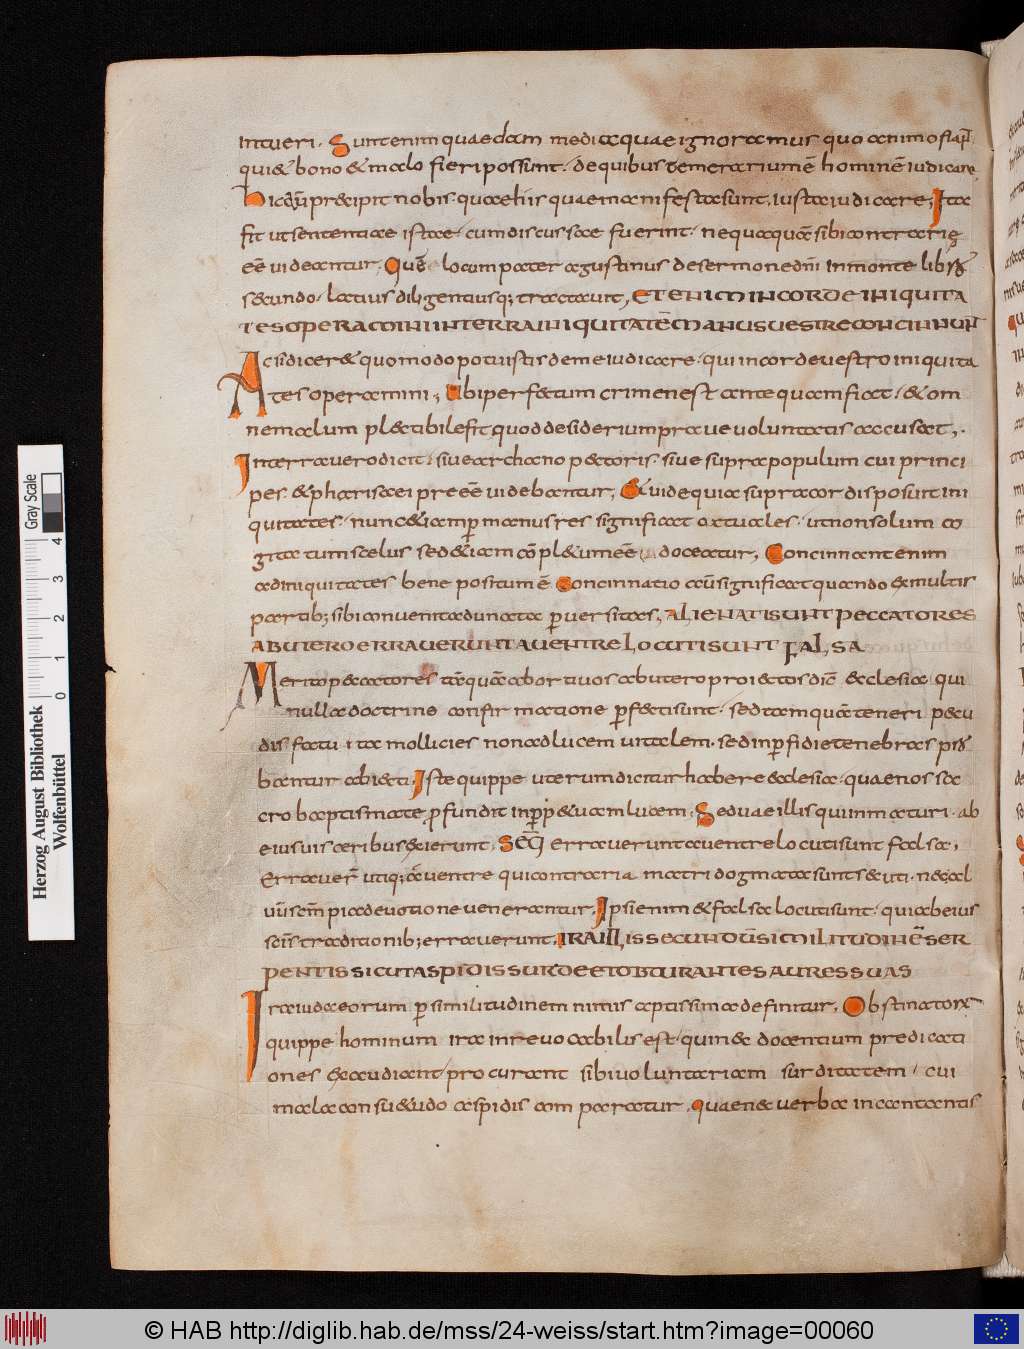 intueri. Sunt enim quaedam mediae quae ignoramus quo animo fiaꝑ
qui & bono & malo fieri possunt. de quibus temerariumē hominē iudicare,
Hic ꝓcipit nobis. quae his quae manifesta sunt. iusta iudicare, Ita
fit ut sententiae istae. cum discussae fuerint. nequaquā sibi contrarię
eē uideantur. Quē locum pater agustinus de sermone dn̄i in monte libꝶ
secundo. latius diligentiusq; tractauit, ETENIM IN CORDE INIQUITA
TES OPERAMINI IN TERRA INIQUITATĒ MANUS UESTRE CONCINNUN͞T
Ac si dicer& quomodo potuistis de me iudicare. qui in corde uestro iniquita
tes operamini; Ubi perfectum crimen est antequam fiat. & om
ne malum plectibile fit quod desiderium prauae uoluntatis accusat,.
In terra uero dicit. siue archano pectoris. siue supra populum cui princi
pes. & pharisaei preeē uidebantur, Et uide quia supra cor disposuit ini
quitates. nunc &iam ꝑ manus res significat actuales. ut non solum co
gitatum scelus sed &iam cōpl&um eē doceatur, Concinnant enim
ad iniquitates bene positum ē Concinnatio aūt significat quando & multis
partib; sibi conuenit adunata ꝑuersitas, ALIENATI SUNT PECCATORES
AB UTERO ERRAVERUNT A VENTRE LOCUTI SUNT FALSA
Merito peccatores tāquā abortiuos ab utero proiectos dic̄ ecclesiae qui
nulla doctrine confirmatione ꝑfecti sunt. sed tamquā teneri pecu
dis fetu. ita mollicies non ad lucem uitalem. sed in perfidie tenebras ꝓr
bantur abiecti. Iste quippe uterum dicitur habere ecclesiae. quae nos sa
cro baptismate ꝓfundit in ꝑp&uam lucem. Sed uae illis qui inmaturi. ab
eius uisceribus exierunt. Seq̄ erraverunt a ventre locuti sunt falsa,
Errauer̄ utiq; a uentre qui contraria matri dogmata sunt secuti. nec al
uū sc̄m pia deuotione uenerantur. Ipsi enim & falsa locuti sunt. qui ab eius
sc̄is traditionib; erraverunt. IRA ILLIS SECUNDŪ SIMILITUDINĒ SER
PENTIS SICUT ASPIDIS SURDE ET OBTURANTES AURES SUAS
Ira iudaeorum ꝑ similitudinem nimis aptissima definitur. Obstinatorꝝ
quippe hominum ira inreuocabilis est. qui nec docentium predicati
ones exaudiant. procurant sibi uoluntariam surditatem. cui
mala consu&udo aspidis comparatur. quae nec verba incantantis
Herzog August Bibliothek
Wolfenbüttel
Gray Scale
0 1 2 3 4
© HAB http://diglib.hab.de/mss/24-weiss/start.htm?image=00060